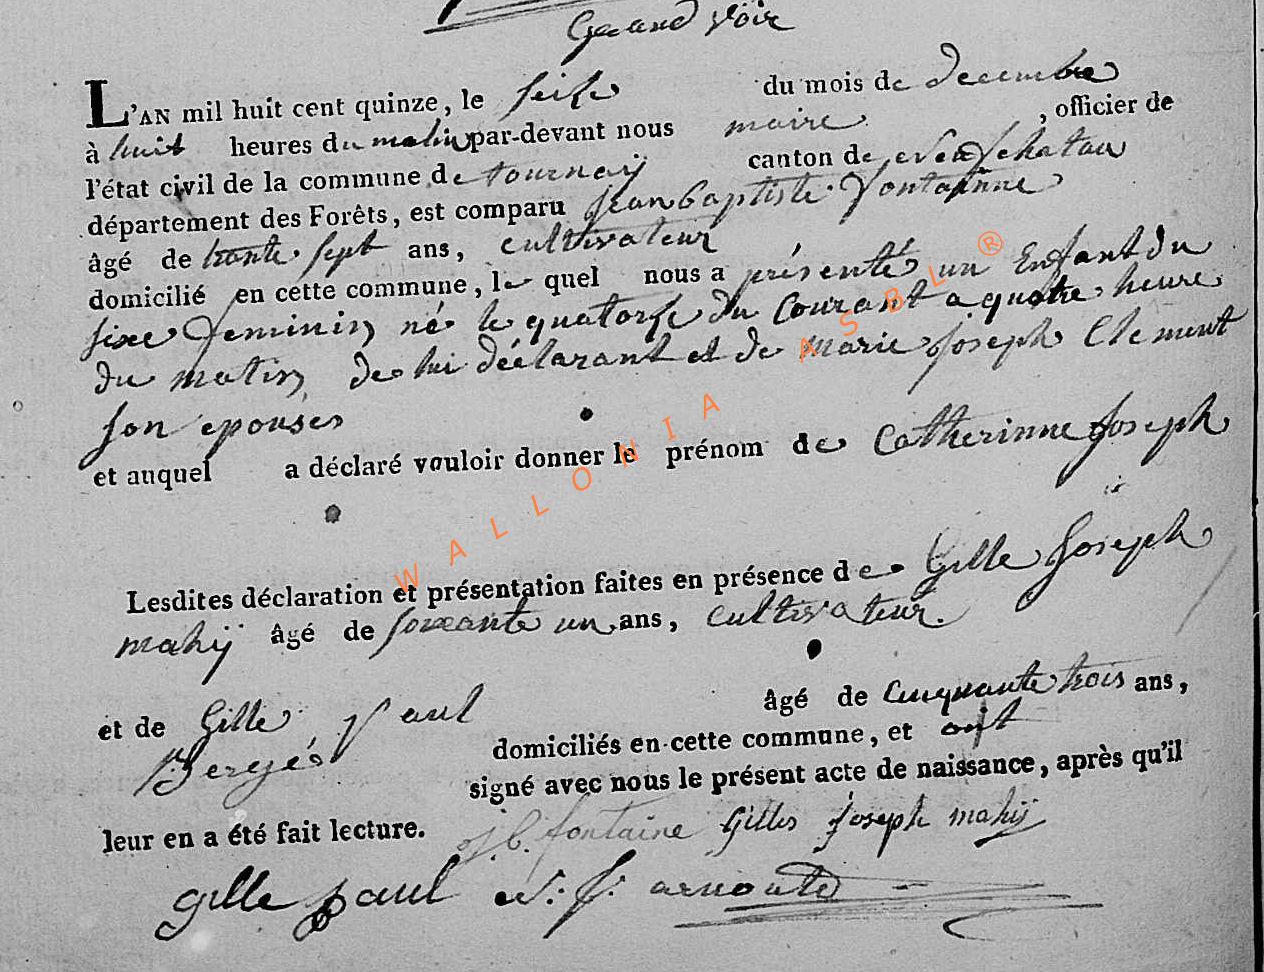 Grand voir
L'AN mil huit cent quinze, le seise du mois de decembre
à huit heures du matin par-devant nous maire , officier de
l'état civil de la commune de tournay canton de neufchatau
département des Forêts, est comparu Jean baptiste fontainne
âgé de trante sept ans, cultivateur
domicilié en cette commune, le quel nous a présenté un Enfant du
sixe feminin né le quatorse du Courant a quatre heure
du matin, de lui déclarant et de marie joseph Clement
son epouse
et auquel a déclaré vouloir donner le prénom de Catherinne Joseph
Lesdites déclaration et présentation faites en présence de Gille Joseph
mahij âgé de soixante un ans, cultivateur.
et de Gille paul âgé de Cinquante trois ans,
Bergé domiciliés en cette commune, et ont
signé avec nous le présent acte de naissance, après qu'il
leur en a été fait lecture. j. b. fontaine Gilles joseph mahij
gille paul
WALLONIA ASBL ®